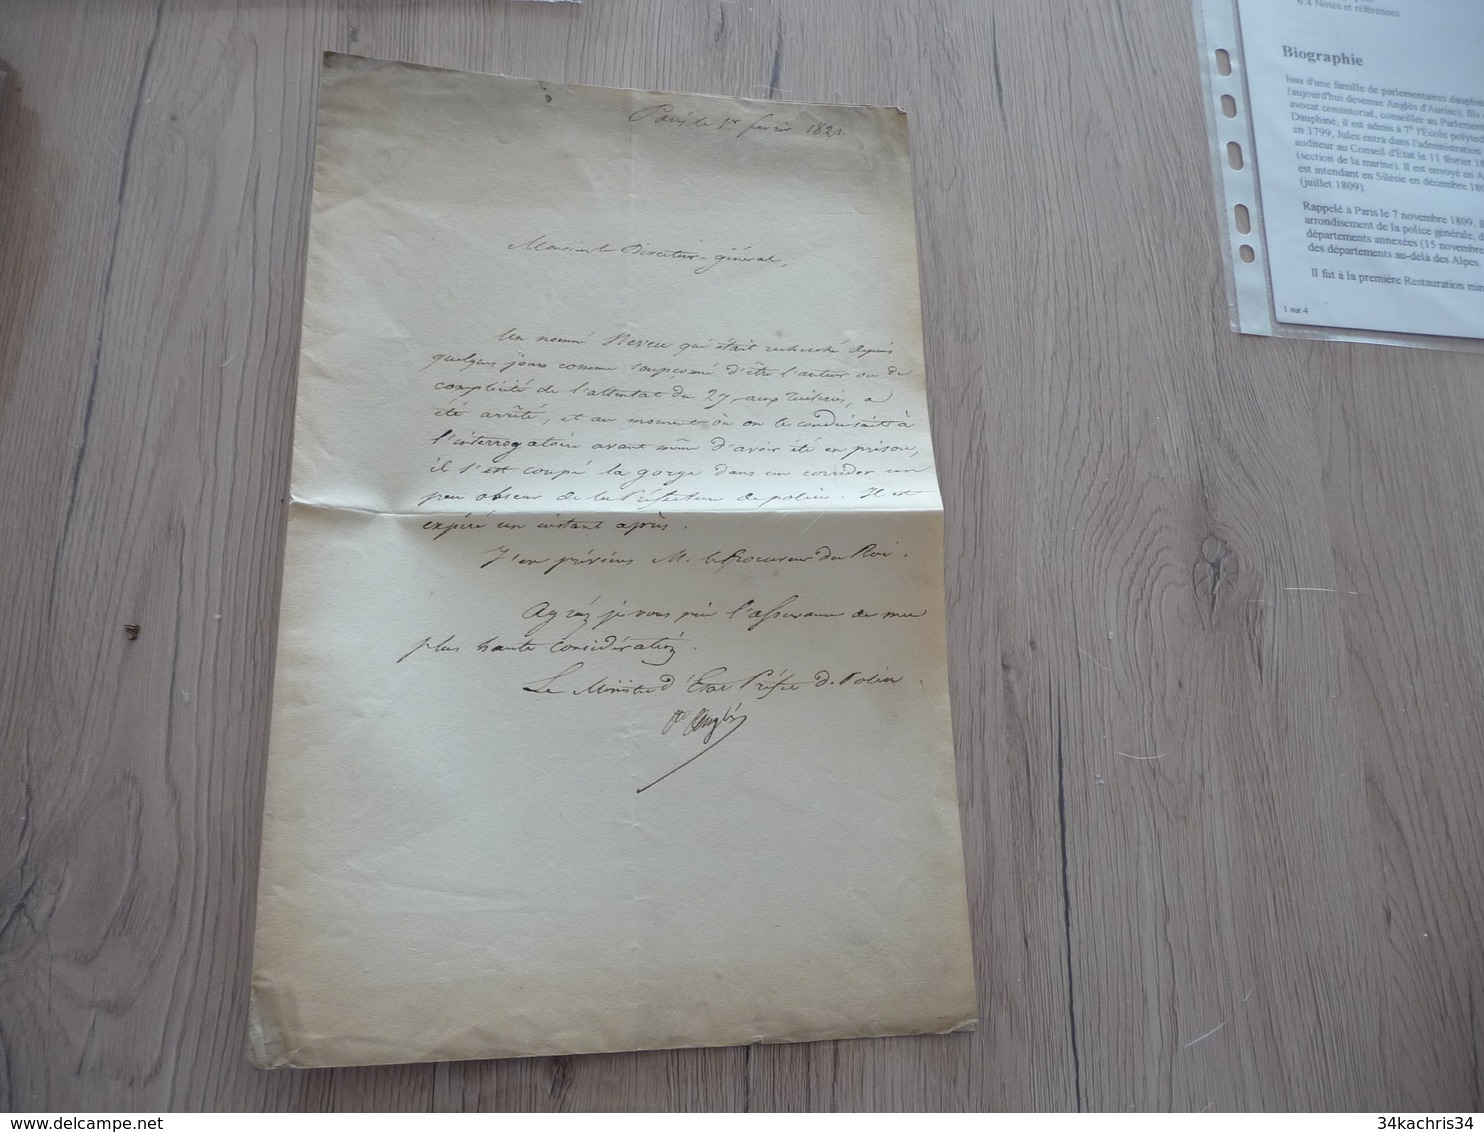 Paris le 1er février 1821.
Monsieur le Directeur-général,
Un nommé Neveu qui était recherché depuis
quelques jours comme soupçonné d'être l'auteur ou de
complicité de l'attentat du 27, aux Tuileries, a
été arrêté, et au moment où on le conduisait à
l'interrogatoire avant même d'avoir été en prison,
il s'est coupé la gorge dans un corridor un
peu obscur de la Préfecture de police. Il est
expiré un instant après.
J'en préviens M. le Procureur du Roi.
Agréez je vous prie l'assurance de ma
plus haute considération.
Le Ministre d'État Préfet de Police
Cte Anglès
6.4 Notes et références
Biographie
Issu d'une famille de parlementaires dauph
(aujourd'hui devenue Anglès d'Auriac), fils
avocat consistorial, conseiller au Parleme
Dauphiné, il est admis à 7e l'École polytec
en 1799, Jules entra dans l'administration
auditeur au Conseil d'État le 11 février 18
(section de la marine). Il est envoyé en A
est intendant en Silésie en décembre 180
(juillet 1809).
Rappelé à Paris le 7 novembre 1809, il
arrondisement de la police générale, d
départements annexées (15 novembre
des départements au-delà des Alpes.
Il fut à la première Restauration min
1 sur 4
34kachris34